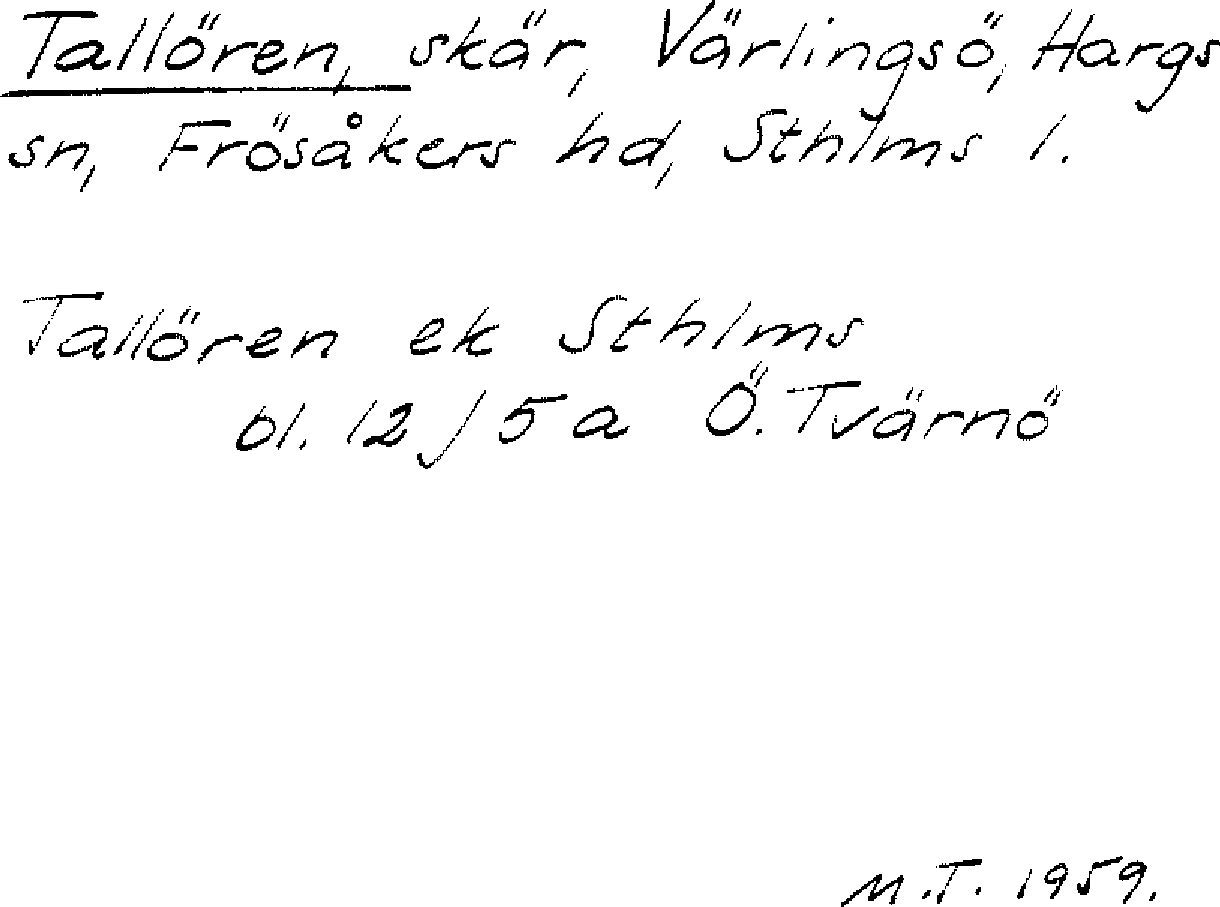 Tallören, skär, Värlingsö, Hargs
sn, Frösåkers hd, Sthlms l.
Tallören ek Sthlms
bl. 12 J 5 a Ö. Tvärnö
M.T. 1959.